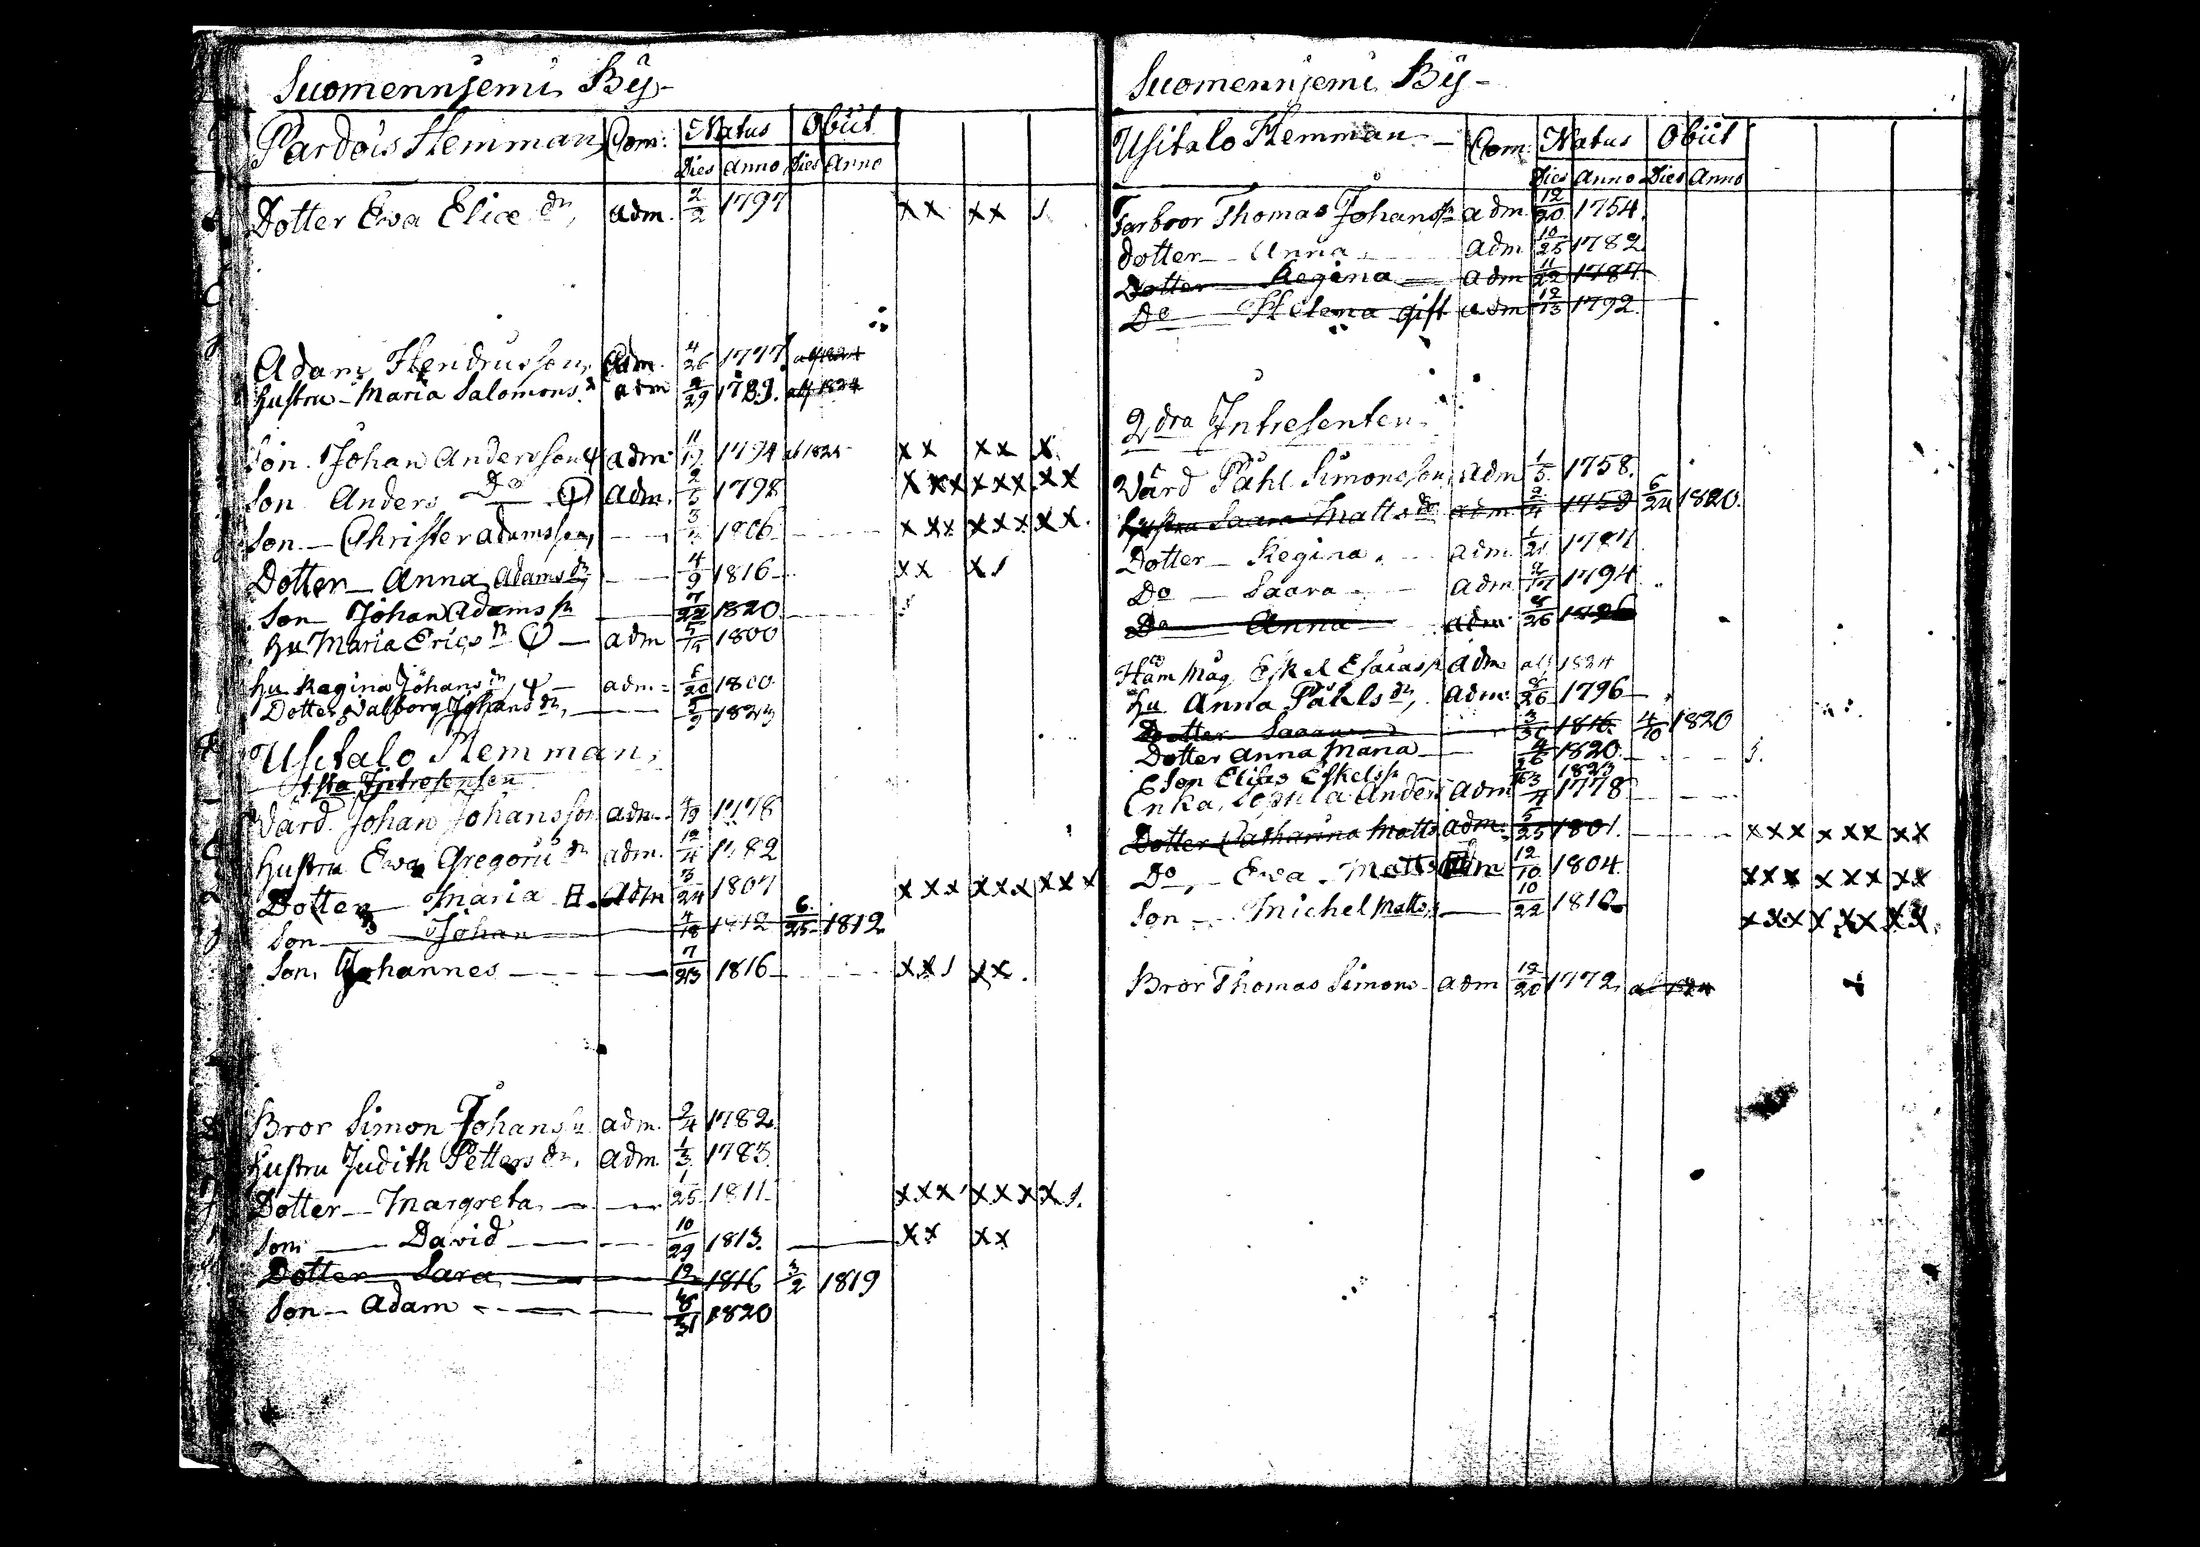 Suomenniemi By
Pardois Hemman Com: Natus Obiit
Dies Anno Dies Anno
Dotter Ewa Elice dr, adm. 2/2 1797 xx xx
Adam Hendrusson, adm. 4/26 1777
hustru Maria Salomons adm 29 1789.
Son. Johan Andersson adm. 11 1794 xx xx x
Son Anders Do adm. 2 1798 xxx xxx xx
Son Christer Adamsson 3 1806 xxx xxx xx
Dotter Anna Adams dr 4/9 1816 xx
Son Johan Adams sn 7/22 1820
hu Maria Erics dr adm 5 1800
hu Regina Johans dr adm 20 1800
Dotter Valborg Johans dr 9 1823
Usitalo Hemman,
Intresenten
Värd Johan Johansson adm. 19 1778
hustru Ewa Gregorii dr adm. 12/4 1782
Dotter Maria adm 3/24 1807 xxx xxx xxx
Son Johan 4/18 1812 6/25 1812
Son, Johannes 7/23 1816 xx xx
Bror Simon Johanss adm. 2/4 1782
hustru Judith Petters dr. adm. 1/3 1783
Dotter Margreta 1/25 1811 xxx xxxx
Son David 10/29 1813. xx xx
Dotter Sara 12 1816 3/2 1819
Son Adam 8/31 1820
Suomenniemi By
Usitalo Hemman Com: Natus Obiit
Dies Anno Dies Anno
Farbror Thomas Johans sn adm 12/20 1754.
dotter Anna adm 10/25 1782
Dotter Regina adm 11/22 1787
Do Helena gift adm 12/13 1792
2 dra Intresenten
Värd Påhl Simonsson adm 1/5 1758.
hustru Saara Matts dr adm 2/4 1759 6/24 1820.
Dotter Regina adm 1/21 1787
Do Saara adm 1794
Do Anna adm 26 1796
Hem Måg Eskel Esaiass adm 1824
hu Anna Påhls dr, adm. 26 1796
Dotter Saara 3 1816 4/10 1820
Dotter Anna Maria 4/26 1820
Son Elias Eskelss 1823
Enka Anders adm 4 1778
Dotter Catharina Matts adm. 5/25 1801. xxx xxx xx
Do, Ewa Matts adm 12/10 1804. xxx xxx xx
Son Michel Matts 10/22 1810 xxx xxx xx
Bror Thomas Simons adm 12/20 1772